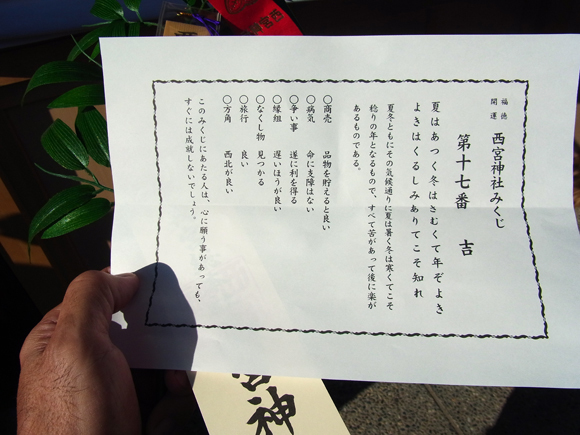 福徳
開運
西宮神社みくじ
第十七番 吉
夏はあつく冬はさむくて年ぞよき
よきはくるしみありてこそ知れ
夏冬ともにその気候通りに夏は暑く冬は寒くてこそ
稔りの年となるもので、すべて苦があって後に楽が
あるものである。
〇商売 品物を貯えると良い
〇病気 命に支障はない
〇争い事 遂に利を得る
〇縁組 遅いほうが良い
〇なくし物 見つかる
〇旅行 良い
〇方角 西北が良い
このみくじにあたる人は、心に願う事があっても、
すぐには成就しないでしょう。
宮神